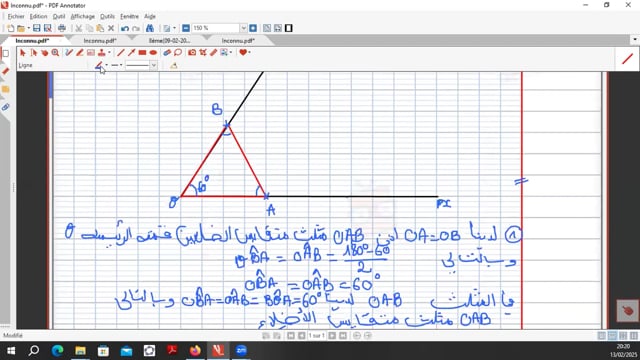 Inconnu.pdf* - PDF Annotator
Fichier Edition Affichage Outils Fenêtre Aide
150 %
Inconnu.pdf* Inconnu.pdf* IIème(09-02-20 Inconnu.pdf*
Ligne
B
60°
O
A
x
① لدينا OA=OB إذن OAB مثلث متقايس الضلعين قمته الرئيسية O
وبالتالي OB̂A = OÂB = 180°-60° / 2
OB̂A = OÂB = 60°
في المثلث OAB لدينا OB̂A=OÂB=BÔA=60° وبالتالي
OAB مثلث متقايس الأضلاع
Prêt
1 sur 1
20:20
13/02/2025